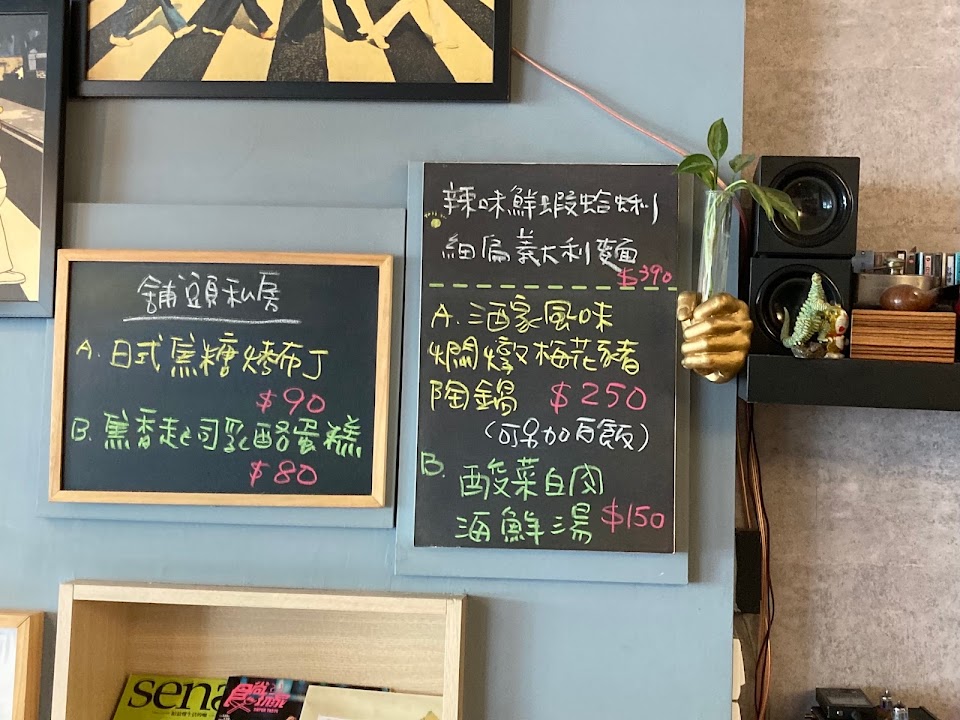 舖頭私房
A. 日式焦糖烤布丁
$90
B. 焦香起司乳酪蛋糕
$80
辣味鮮蝦蛤蜊
細扁義大利麵
$390
A. 酒家風味
爛燉梅花豬
陶鍋 $250
(可另加白飯)
B. 酸菜白肉
海鮮湯 $150
sena
食尚玩家